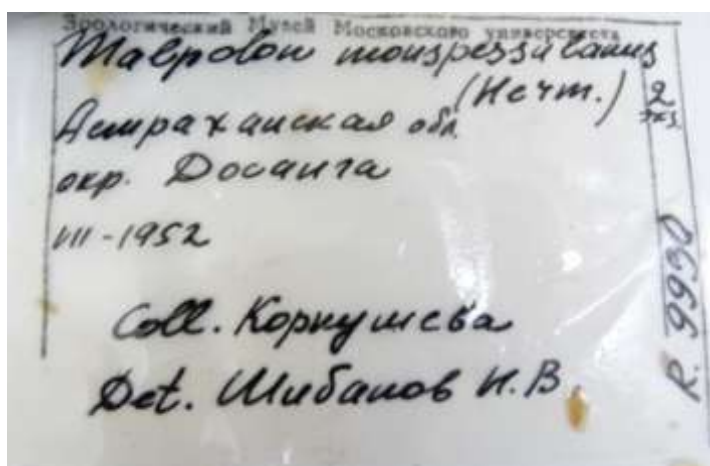 Зоологический Музей Московского университета
Malpolon monspessulanus
(Нечт.)
2
экз.
Астраханская обл.
окр. Досанга
VII-1952
Coll. Коркушева
Det. Шибанов Н.В.
R. 9990